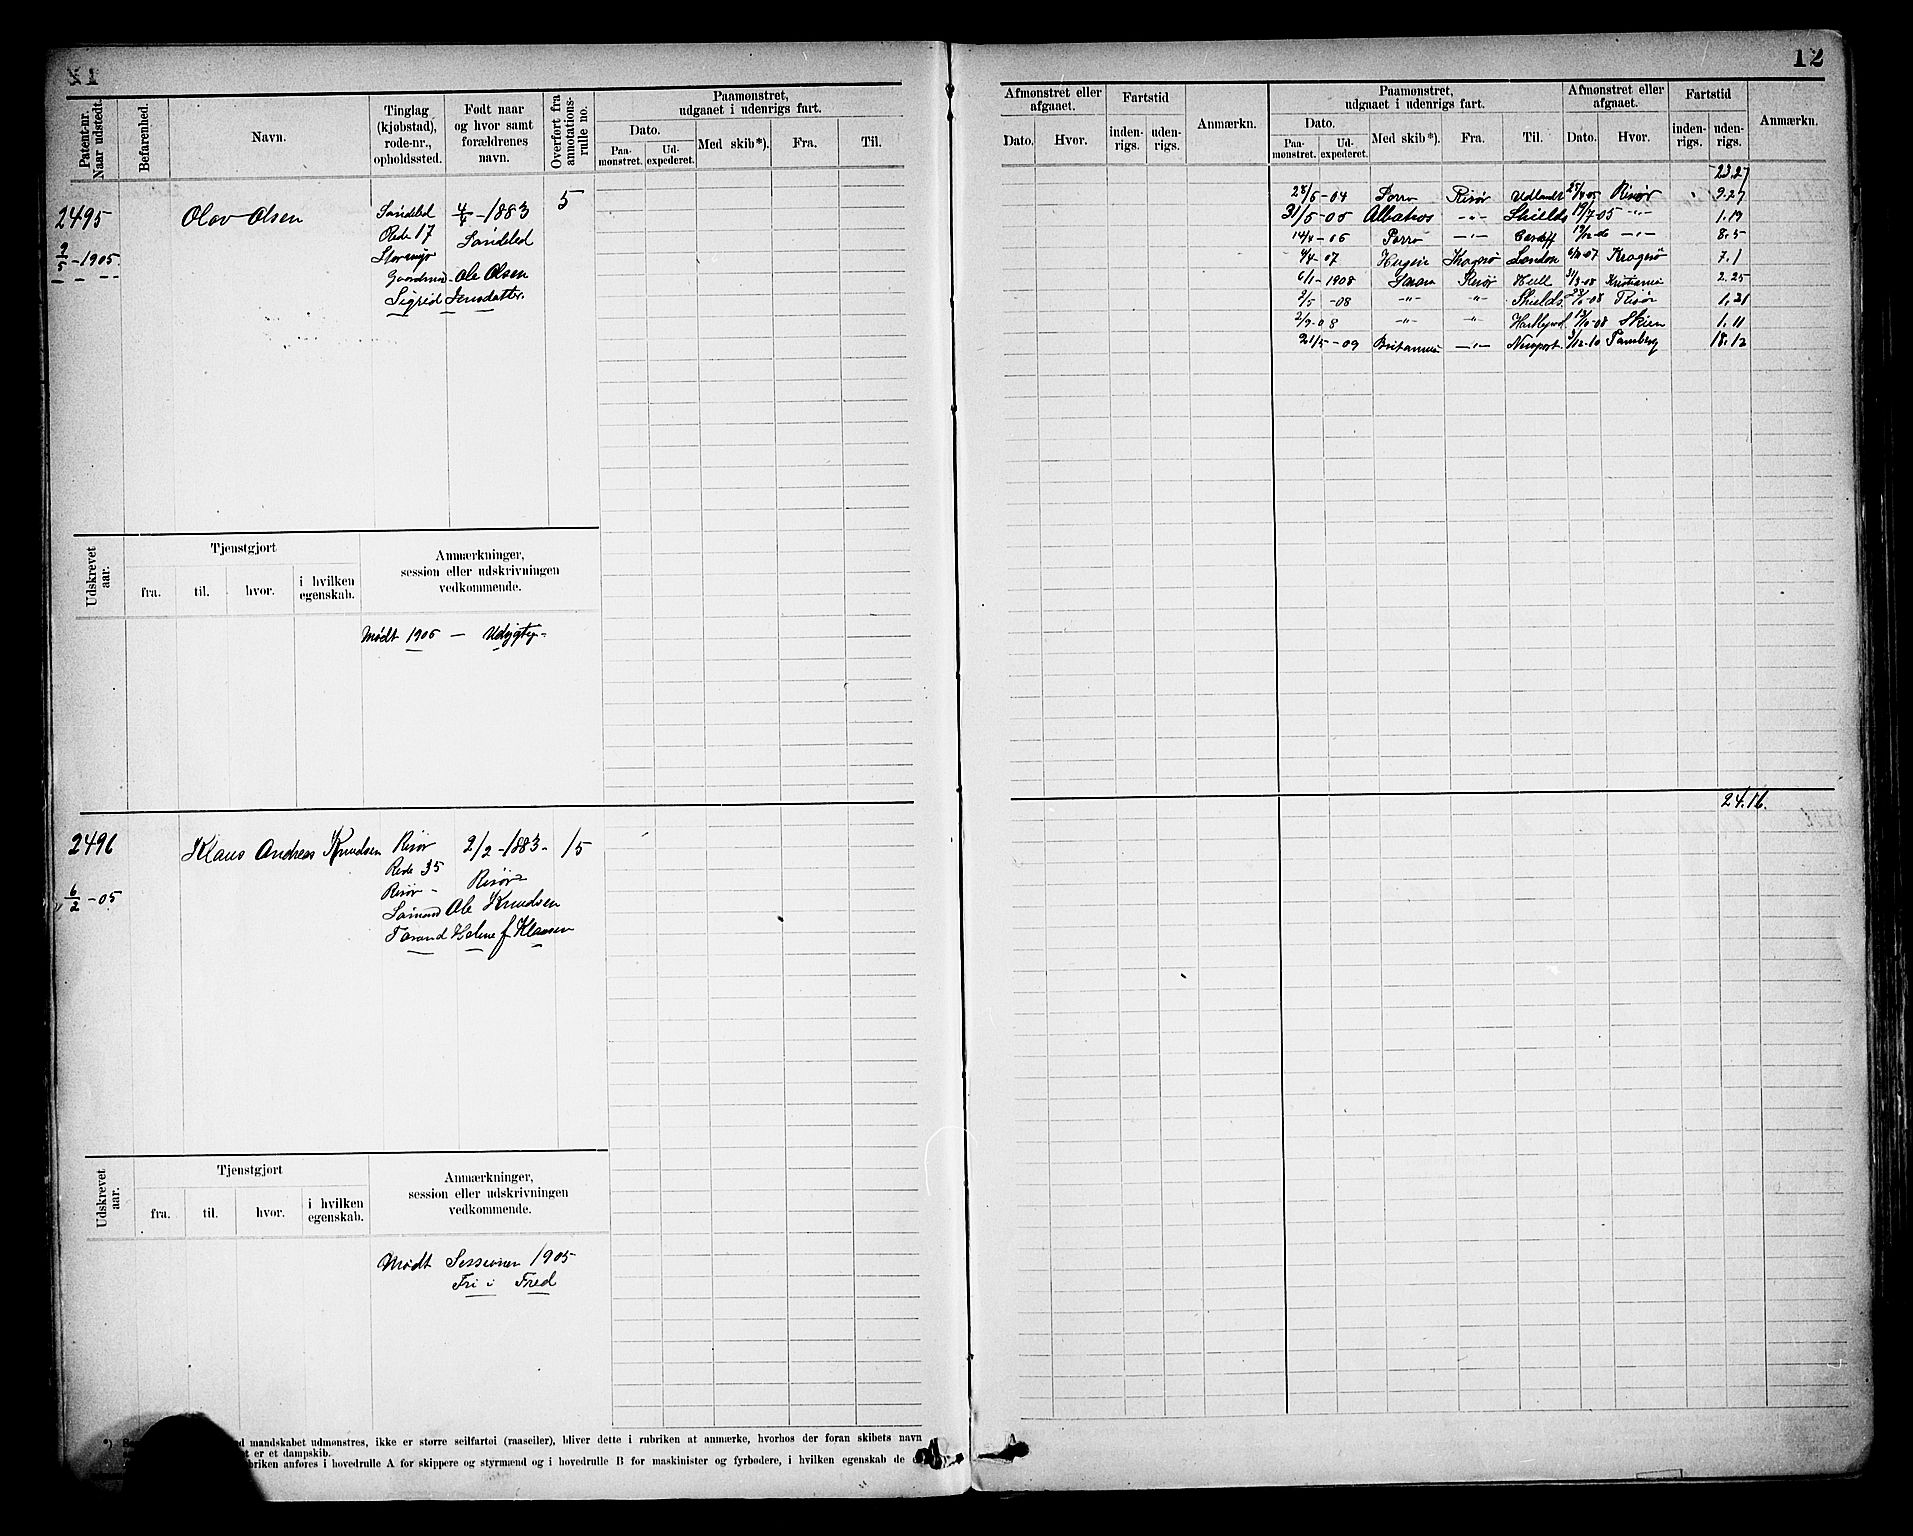 12
Patent-nr. Naar udstedt.
Befarenhed.
Navn.
Tinglag (kjøbstad), rode-nr., opholdssted.
Født naar og hvor samt forældrenes navn.
Overført fra annotations-rulle no.
Paamønstret, udgaaet i udenrigs fart.
Dato.
Paa-mønstret.
Ud-expederet.
Med skib*).
Fra.
Til.
Afmønstret eller afgaaet.
Dato.
Hvor.
Fartstid
inden-rigs.
uden-rigs.
Anmærkn.
Paamønstret, udgaaet i udenrigs fart.
Dato.
Paa-mønstret.
Ud-expederet.
Med skib*).
Fra.
Til.
Afmønstret eller afgaaet.
Dato.
Hvor.
Fartstid
inden-rigs.
uden-rigs.
Anmærkn.
2495
2/5 - 1905
Olav Olsen
Søndeled
Rode 17
Gaardmd. Ole Olsen
Sigrid Jensdatter.
4/4 - 1883
Søndeled
5
23.27
28/5-04 Risør Udlandet Risør 9.27
31/5-05 Albatros -"- Shields 19/7-05 -"- 1.19
14/4-06 -"- Cardiff 19/12-06 -"- 8.5
4/4-07 Kragerø London 6/11-07 Kragerø 7.1
6/1-1908 Risør Hull 31/3-08 Kristiania 2.25
2/5-08 -"- -"- Shields -08 Risør 1.21
2/9-08 -"- -"- Hartlepool 13/10-08 Skien 1.11
21/5-09 Britannia -"- Newport 3/12-10 Tønsberg 18.12
Udskrevet aar.
Tjenstgjort
fra.
til.
hvor.
i hvilken egenskab.
Anmærkninger, session eller udskrivningen vedkommende.
Mødt 1905 - Udygtig
24.16.
2496
6/2 - 05
Klaus Andreas Knudsen
Risør
Rode 35
Risør -
Sømand Ole Knudsen
Helene f. Klausen
2/2 - 1883 -
Risør
15
Udskrevet aar.
Tjenstgjort
fra.
til.
hvor.
i hvilken egenskab.
Anmærkninger, session eller udskrivningen vedkommende.
Mødt Sessionen 1905
Fri i Fred
mandskabet udmønstres, ikke er større seilfartøi (raaseiler), bliver dette i rubriken at anmærke, hvorhos der foran skibets navn
et er et dampskib.
anføres i hovedrulle A for skippere og styrmænd og i hovedrulle B for maskinister og fyrbødere, i hvilken egenskab de